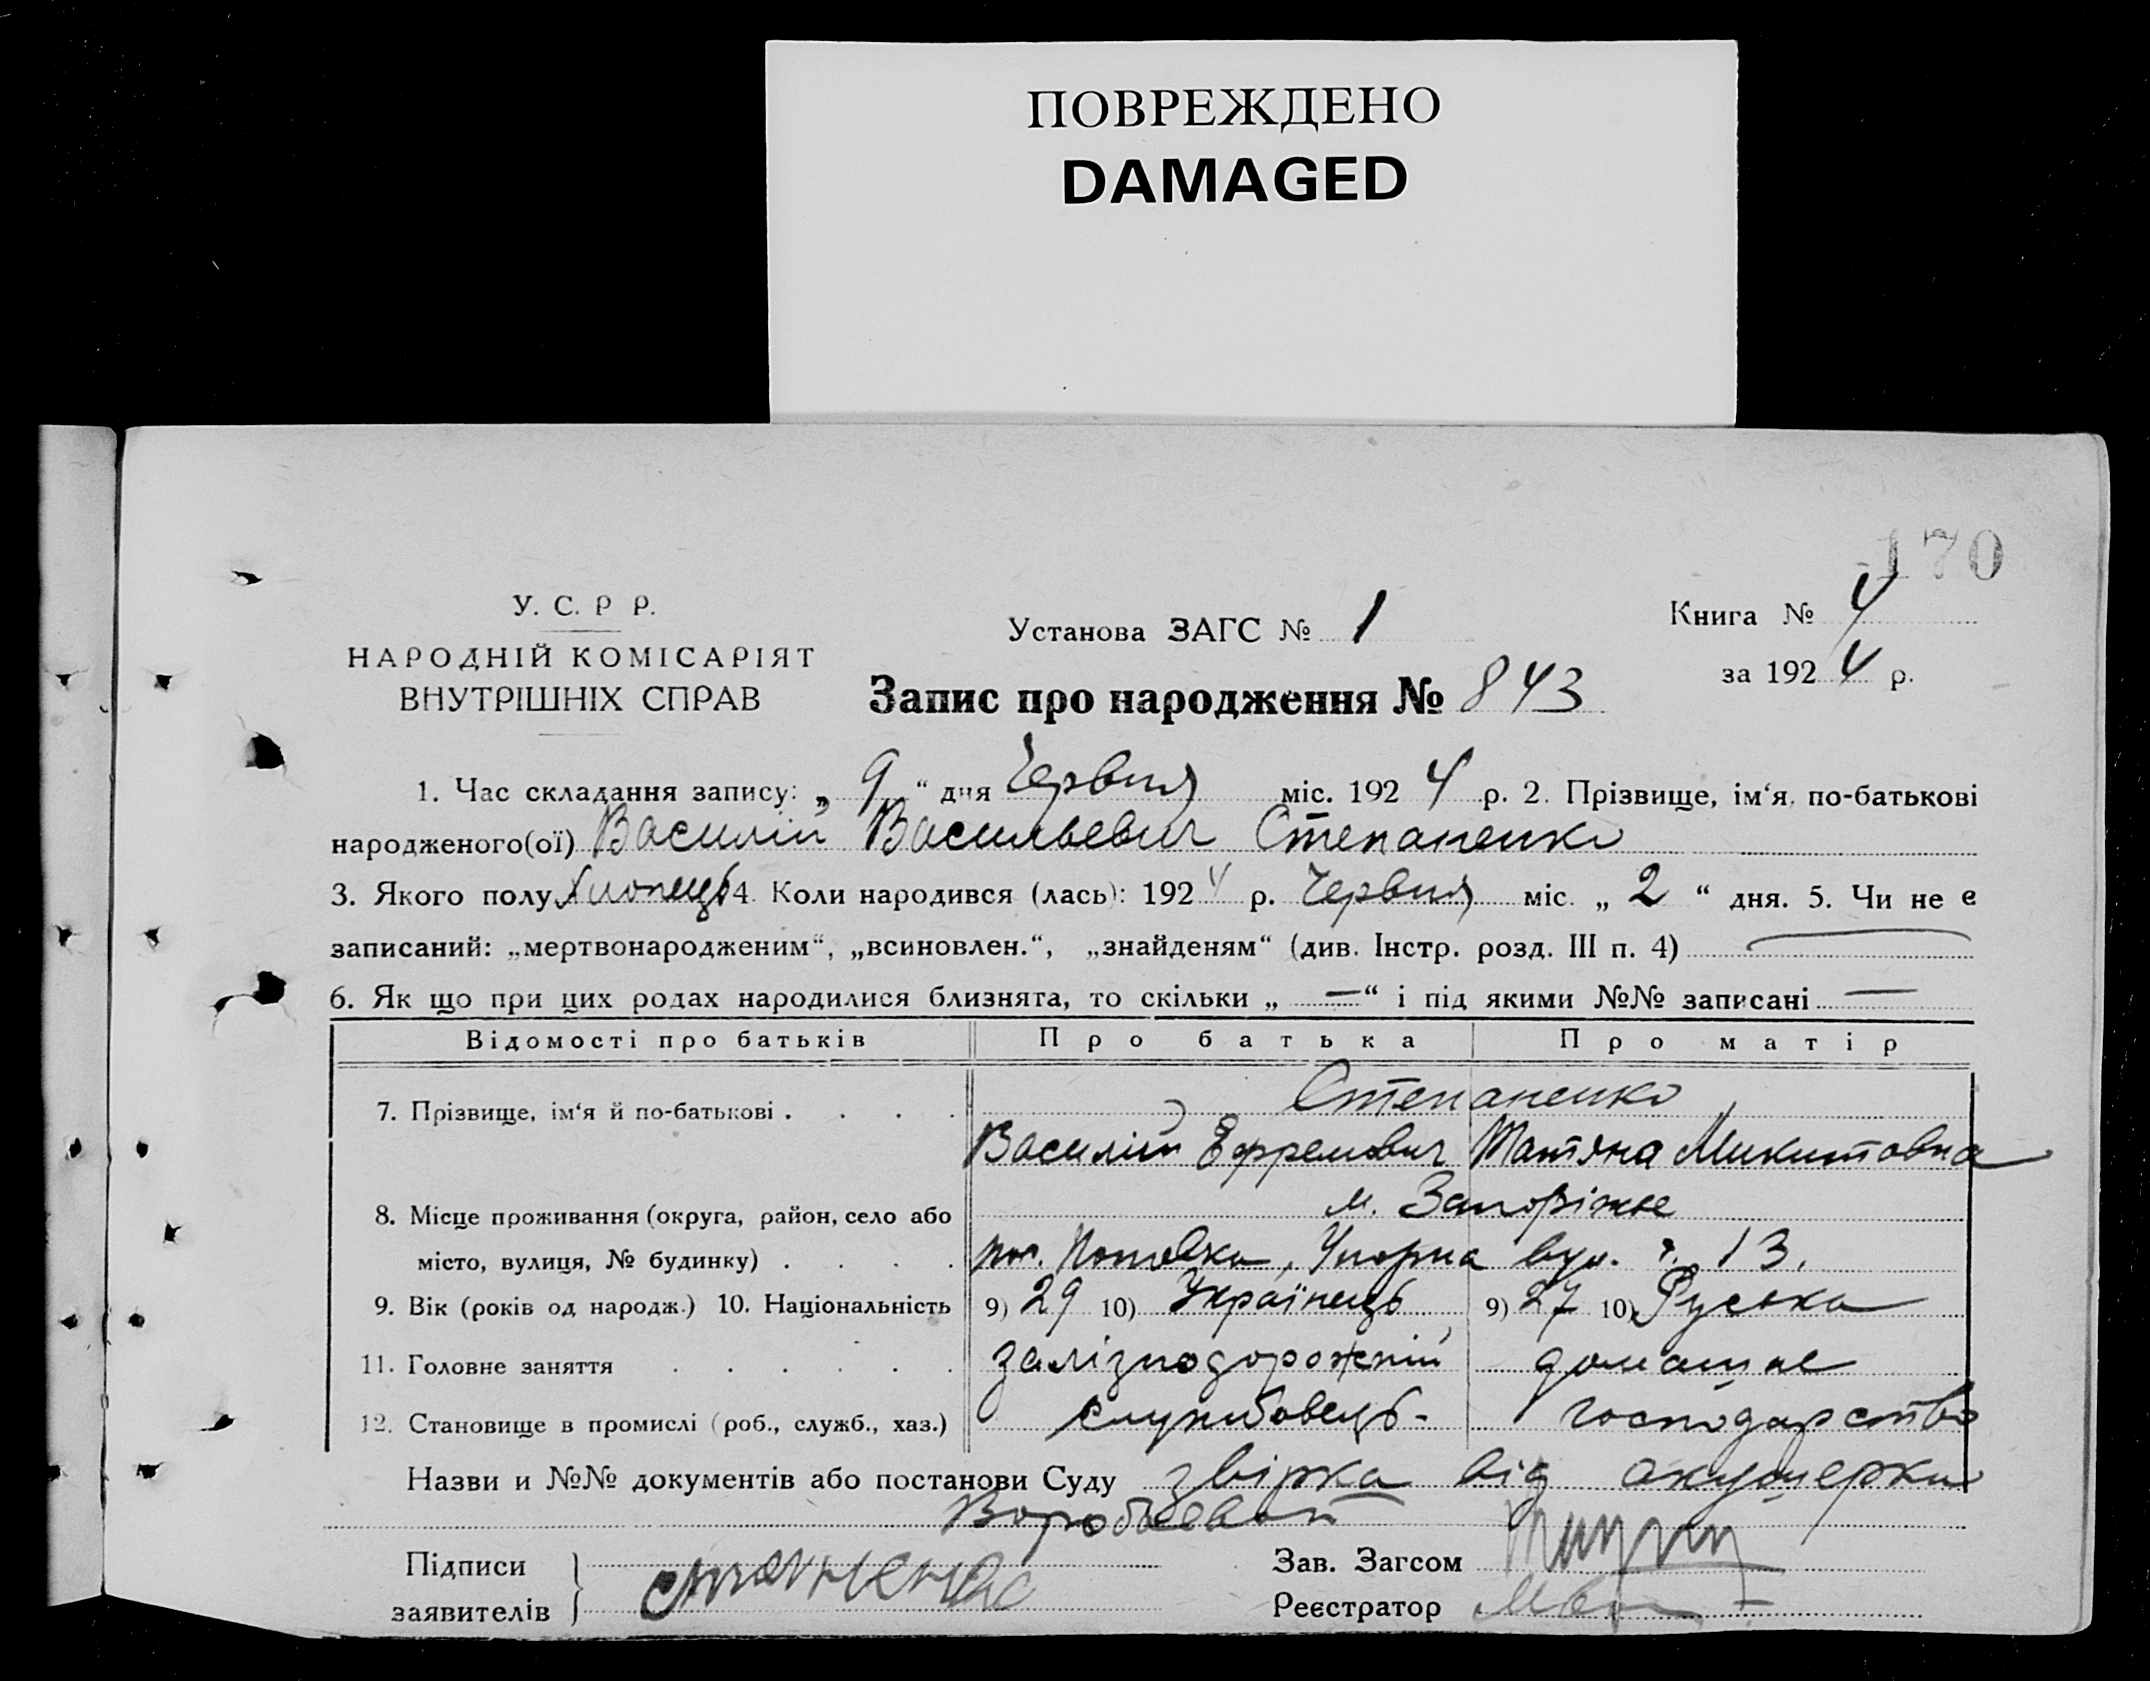 ПОВРЕЖДЕНО
DAMAGED
170
У. С. Р Р.
НАРОДНІЙ КОМІСАРІЯТ
ВНУТРІШНІХ СПРАВ
Установа ЗАГС № 1
Книга № 4
за 1924 р.
Запис про народження № 843
1. Час складання запису: „ 9 “ дня Червня міс. 1924 р. 2. Прізвище, ім‘я, по-батькові
народженого(ої) Василій Васильевич Степаненко
3. Якого полу Хлопець 4. Коли народився (лась): 1924 р. Червня міс. „ 2 “ дня. 5. Чи не є
записаний: „мертвонародженим“, „всиновлен.“, „знайденям“ (див. Інстр. розд. III п. 4)
6. Як що при цих родах народилися близнята, то скільки „ — “ і під якими №№ записані —
Відомості про батьків Про батька Про матір
7. Прізвище, ім‘я й по-батькові . . . . Степаненко
Василій Ефремович Татяна Микитовна
8. Місце проживання (округа, район, село або м. Запоріжже
місто, вулиця, № будинку) . . . . вул. 13.
9. Вік (років од народж.) 10. Національність 9) 29 10) Українець 9) 27 10) Руська
11. Головне заняття . . . . . . залізнодорожній домашне
12. Становище в промислі (роб., служб., хаз.) службовець- господарство
Назви и №№ документів або постанови Суду звірка від акушерки
Воробьевой
Підписи
заявителів
Степаненко
Зав. Загсом
Реєстратор